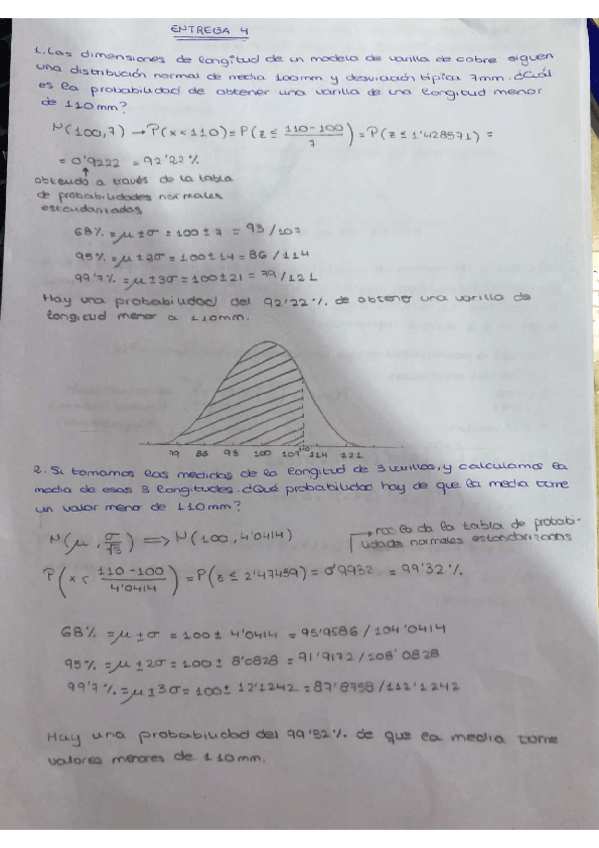 ENTREGA 4
1. Las dimensiones de longitud de un modelo de varilla de cobre siguen
una distribución normal de media 100mm y desviación típica 7mm. ¿Cuál
es la probabilidad de obtener una varilla de una longitud menor
de 110mm?
N(100,7) → P(x<110) = P(z ≤ 110-100/7) = P(z ≤ 1'428571) =
= 0'9222 = 92'22%
obtenido a través de la tabla
de probabilidades normales
estandarizados
68% = μ ± σ = 100 ± 7 = 93/107
95% = μ ± 2σ = 100 ± 14 = 86/114
99'7% = μ ± 3σ = 100 ± 21 = 79/121
Hay una probabilidad del 92'22% de obtener una varilla de
longitud menor a 110mm.
79 86 93 100 107 110 114 121
2. Si tomamos las medidas de la longitud de 3 varillas, y calculamos la
media de esas 3 longitudes. ¿Qué probabilidad hay de que la media tome
un valor menor de 110mm?
N(μ, σ/√3) ⟹ N(100, 4'0414)
nos lo da la tabla de probabi-
lidades normales estandarizados
P(x < 110-100/4'0414) = P(z ≤ 2'47439) = 0'9932 = 99'32%
68% = μ ± σ = 100 ± 4'0414 = 95'9586/104'0414
95% = μ ± 2σ = 100 ± 8'0828 = 91'9172/108'0828
99'7% = μ ± 3σ = 100 ± 12'1242 = 87'8758/112'1242
Hay una probabilidad del 99'32% de que la media tome
valores menores de 110mm.